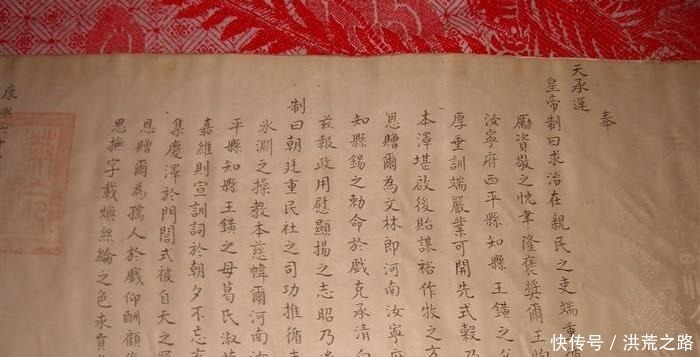 奉
天承運
皇帝制曰求治在親民之吏端重
勵資敬之忱聿隆褒奬爾王
汝寧府西平縣知縣王鐄之父
厚垂訓端嚴業可開先式穀乃
本澤堪啟後貽謀裕作牧之方
恩贈爾為文林郎河南汝寧府
知縣錫之勅命於戲克承清白
茲報政用慰顯揚之志昭乃
制曰朝廷重民社之司功推循
氷淵之操教本慈幃爾河南汝
平縣知縣王鐄之母葛氏淑
嘉維則宣訓詞於朝夕不忘
集慶澤於門閭式被自天之
恩贈爾為孺人於戲仰酬顧
思撫字載煥絲綸之色永賁
康熙六十
快传号/洪荒之路